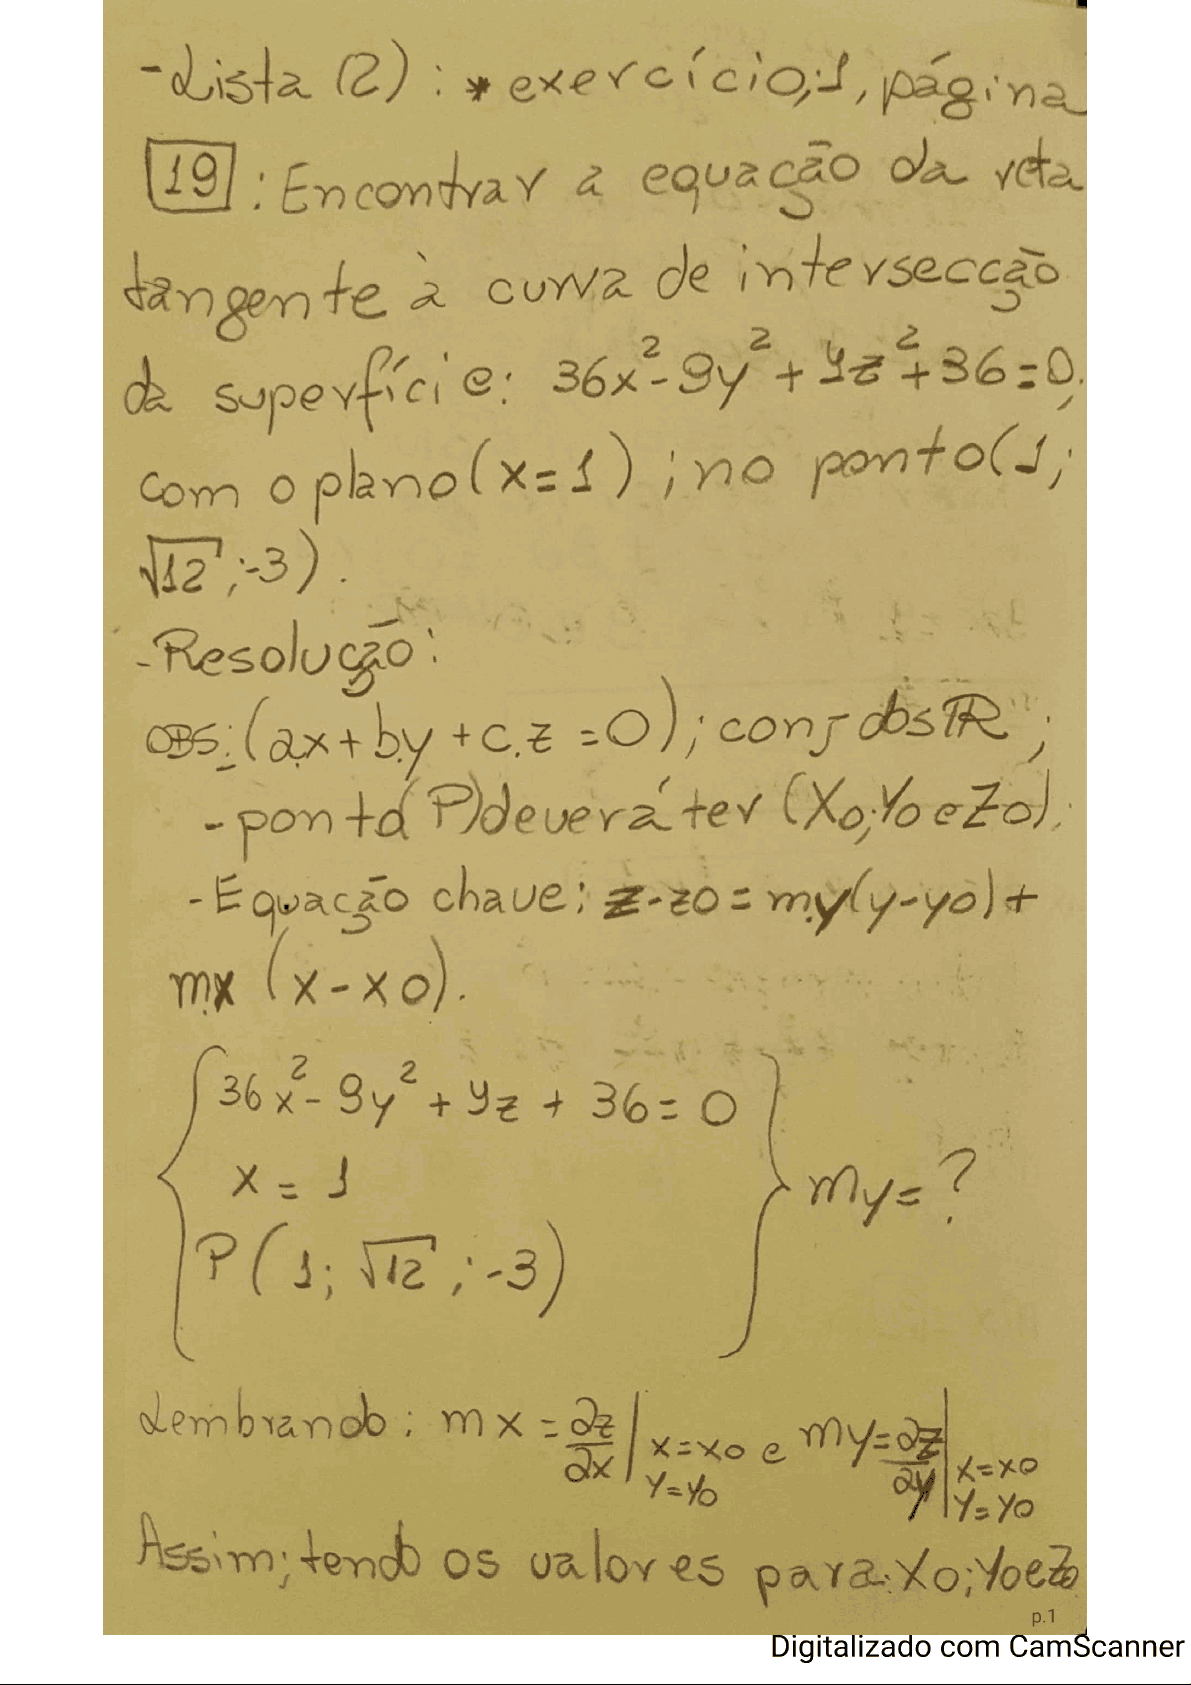 -Lista (2): * exercício,:1, página
19: Encontrar a equação da reta
tangente à curva de intersecção
da superfície: 36x²-9y²+4z²+36=0;
com o plano (x=1); no ponto (1;
√12;-3).
-Resolução:
OBS:(a.x+b.y+c.z=0); conj dos ℝ;
-ponto (P) deverá ter (X0;Y0 e Z0);
-Equação chave: z-z0=m.y(y-y0)+
m.x (x-x0).
36x²-9y²+4z+36=0
x=1
P(1;√12;-3)
my=?
Lembrando: mx=∂z/∂x | x=x0 y=y0 e my=∂z/∂y | x=x0 y=y0
Assim; tendo os valores para: X0; Y0 e Z0
p.1
Digitalizado com CamScanner